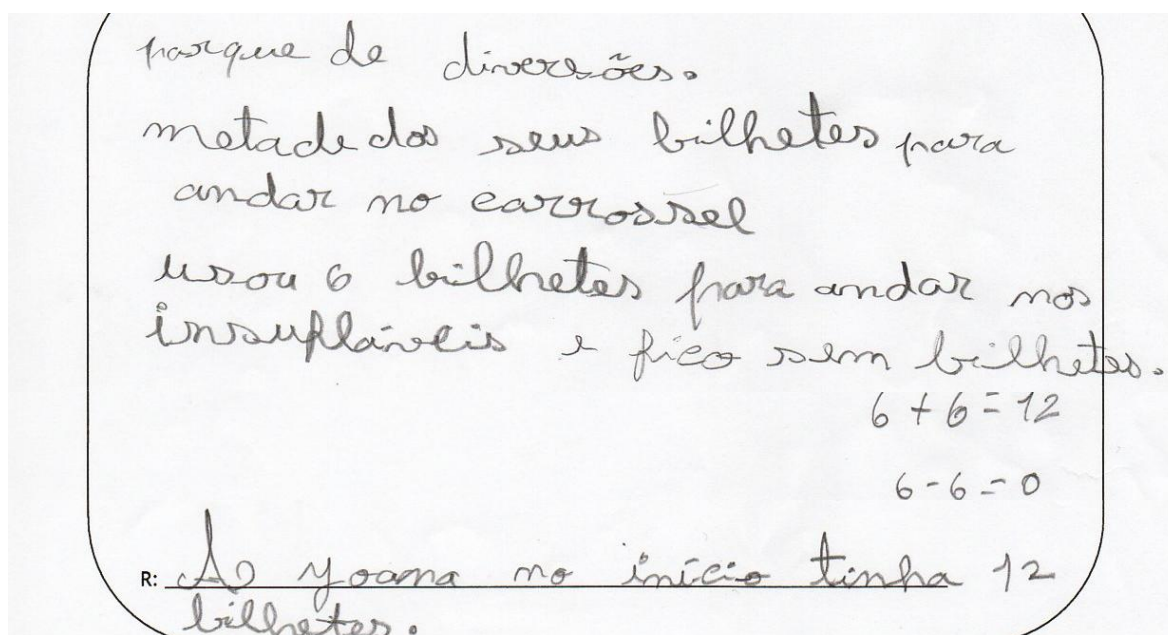 parque de diversões.
metade dos seus bilhetes para
andar no carrossel
usou 6 bilhetes para andar nos
insufláveis e fico sem bilhetes.
6 + 6 = 12
6 - 6 = 0
R: A Yoana no início tinha 12
bilhetes.